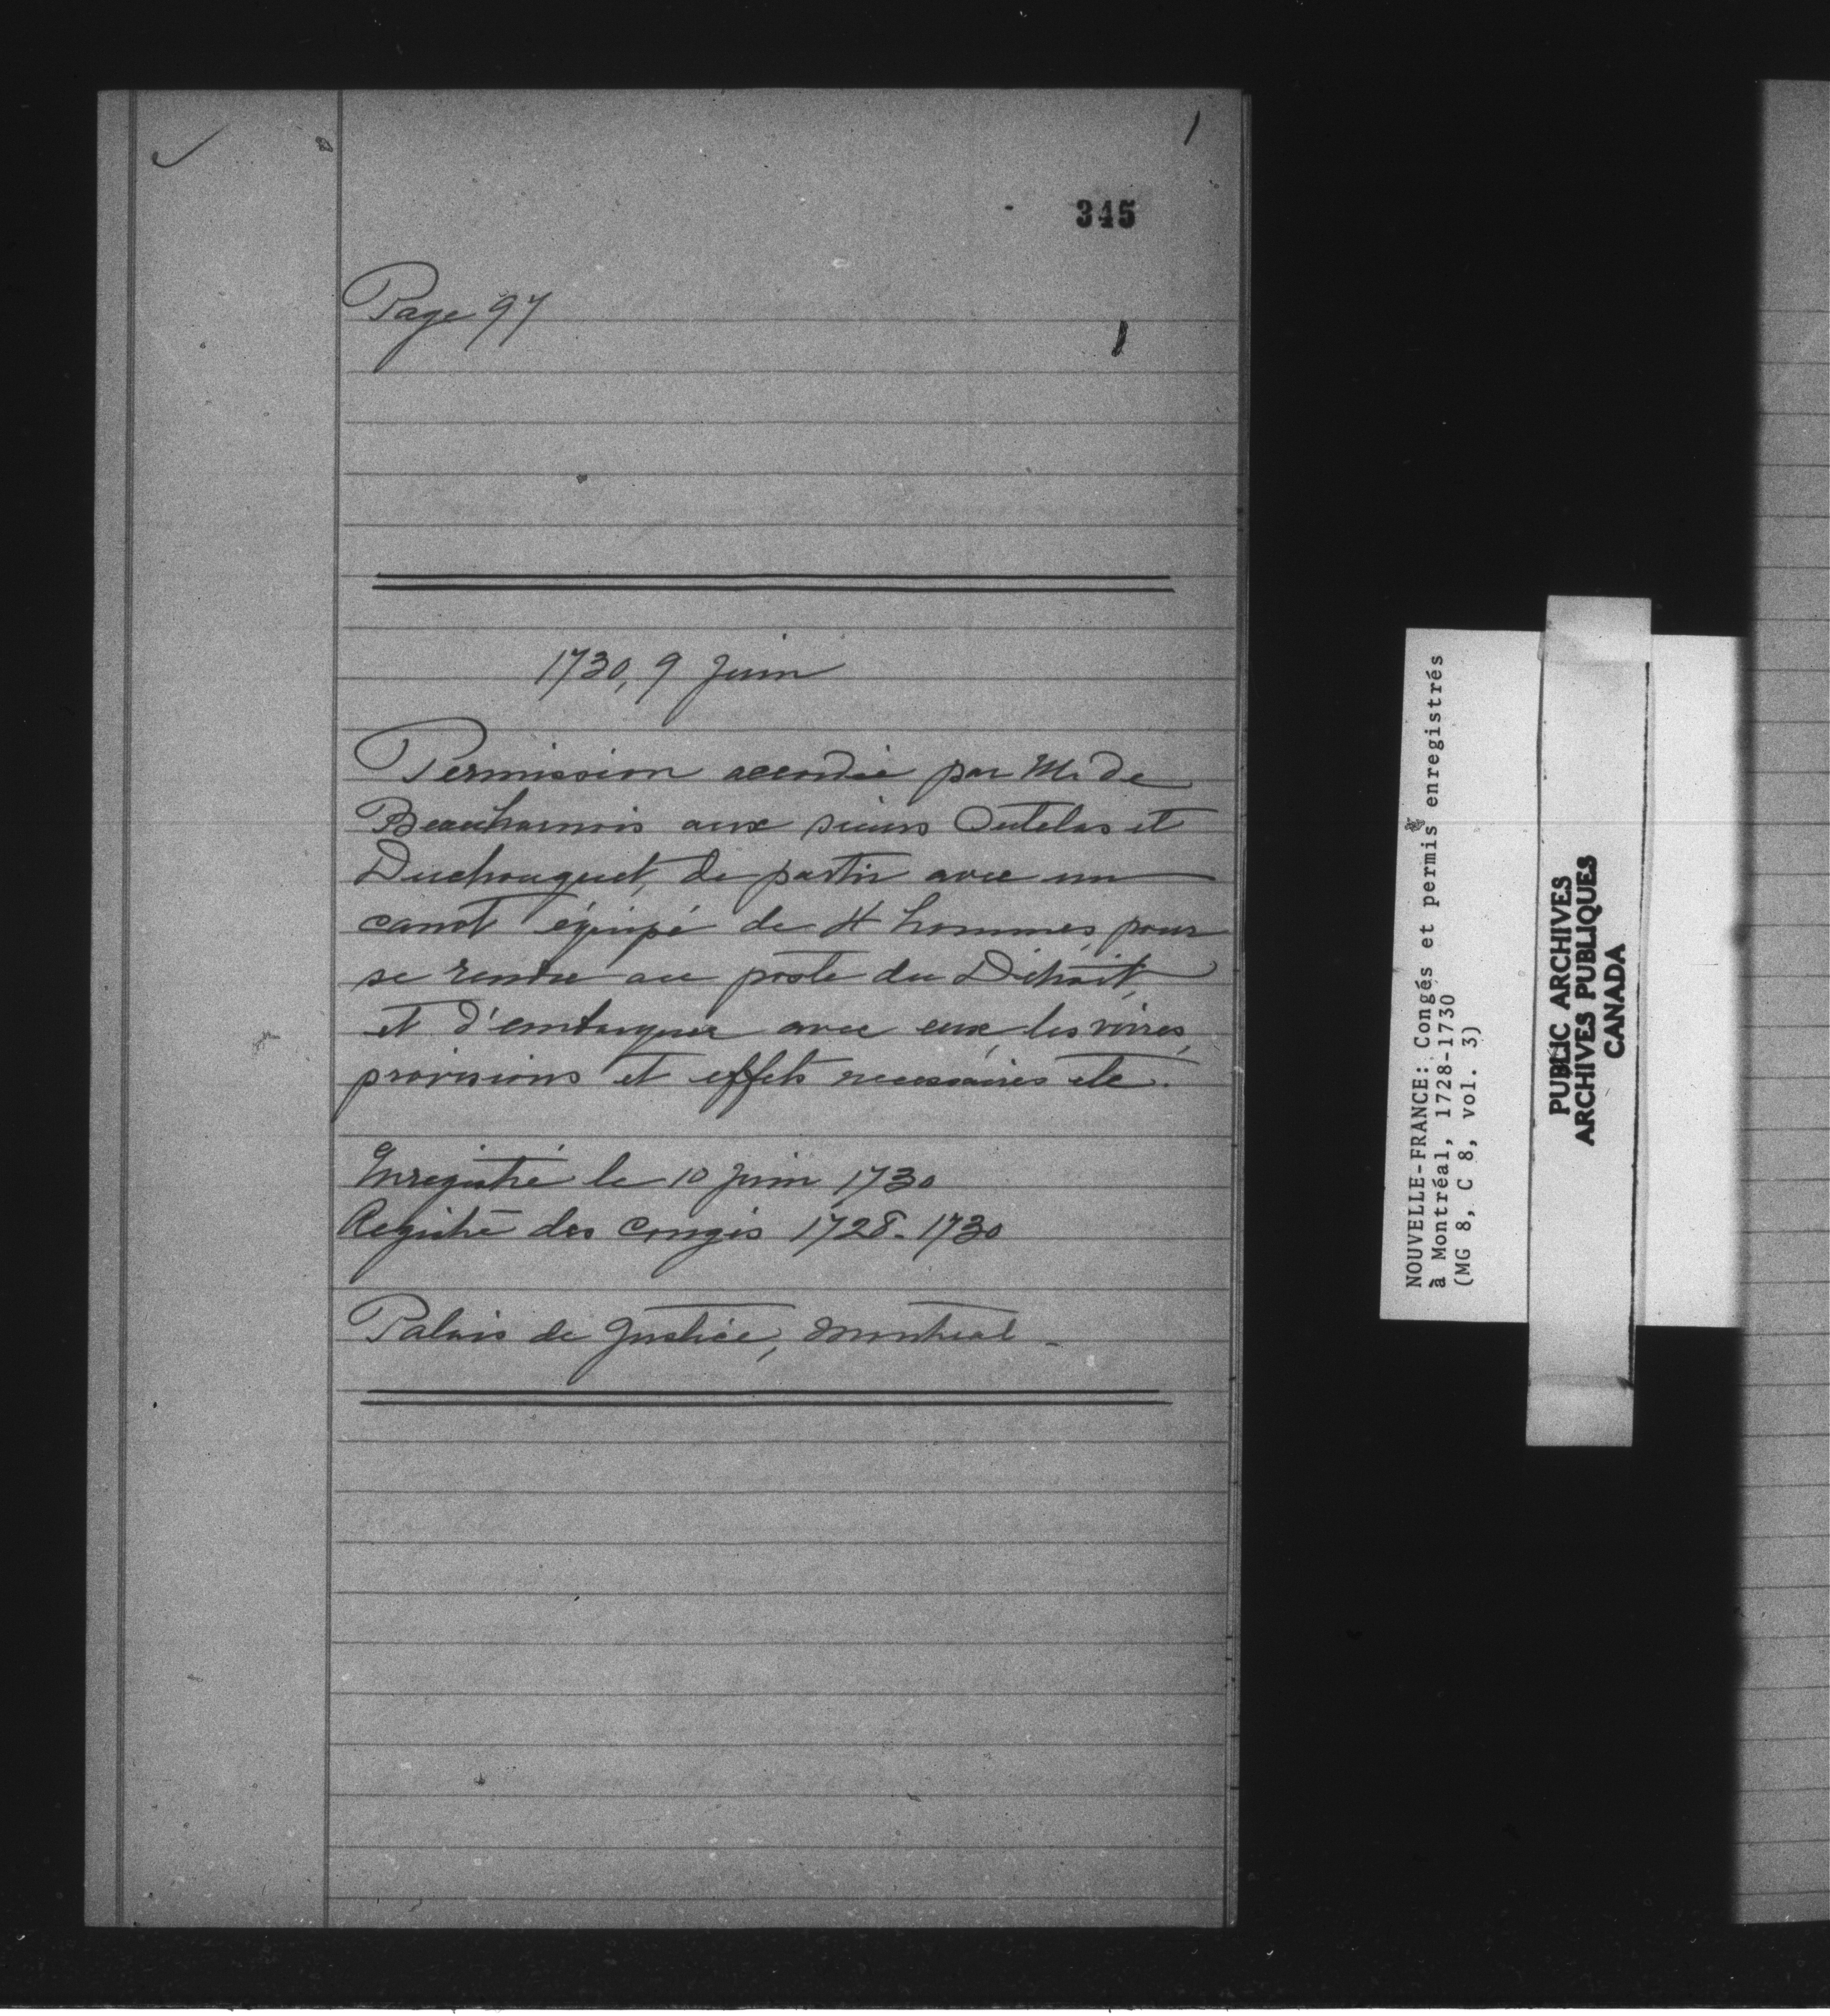 1
345
Page 97
1
1730, 9 Juin
Permission accordée par M. de
Beauharnois aux sieurs Outelas et
Duchouquet, de partir avec un
canot équipé de 4 hommes, pour
se rendre au poste du Détroit,
et d'embarquer avec eux, les vivres,
provisions et effets necessaires etc.
Enregistré le 10 Juin 1730
Registre des Congés 1728-1730
Palais de Justice, Montréal -
NOUVELLE-FRANCE: Congés et permis enregistrés
à Montréal, 1728-1730
(MG 8, C 8, vol. 3)
PUBLIC ARCHIVES
ARCHIVES PUBLIQUES
CANADA